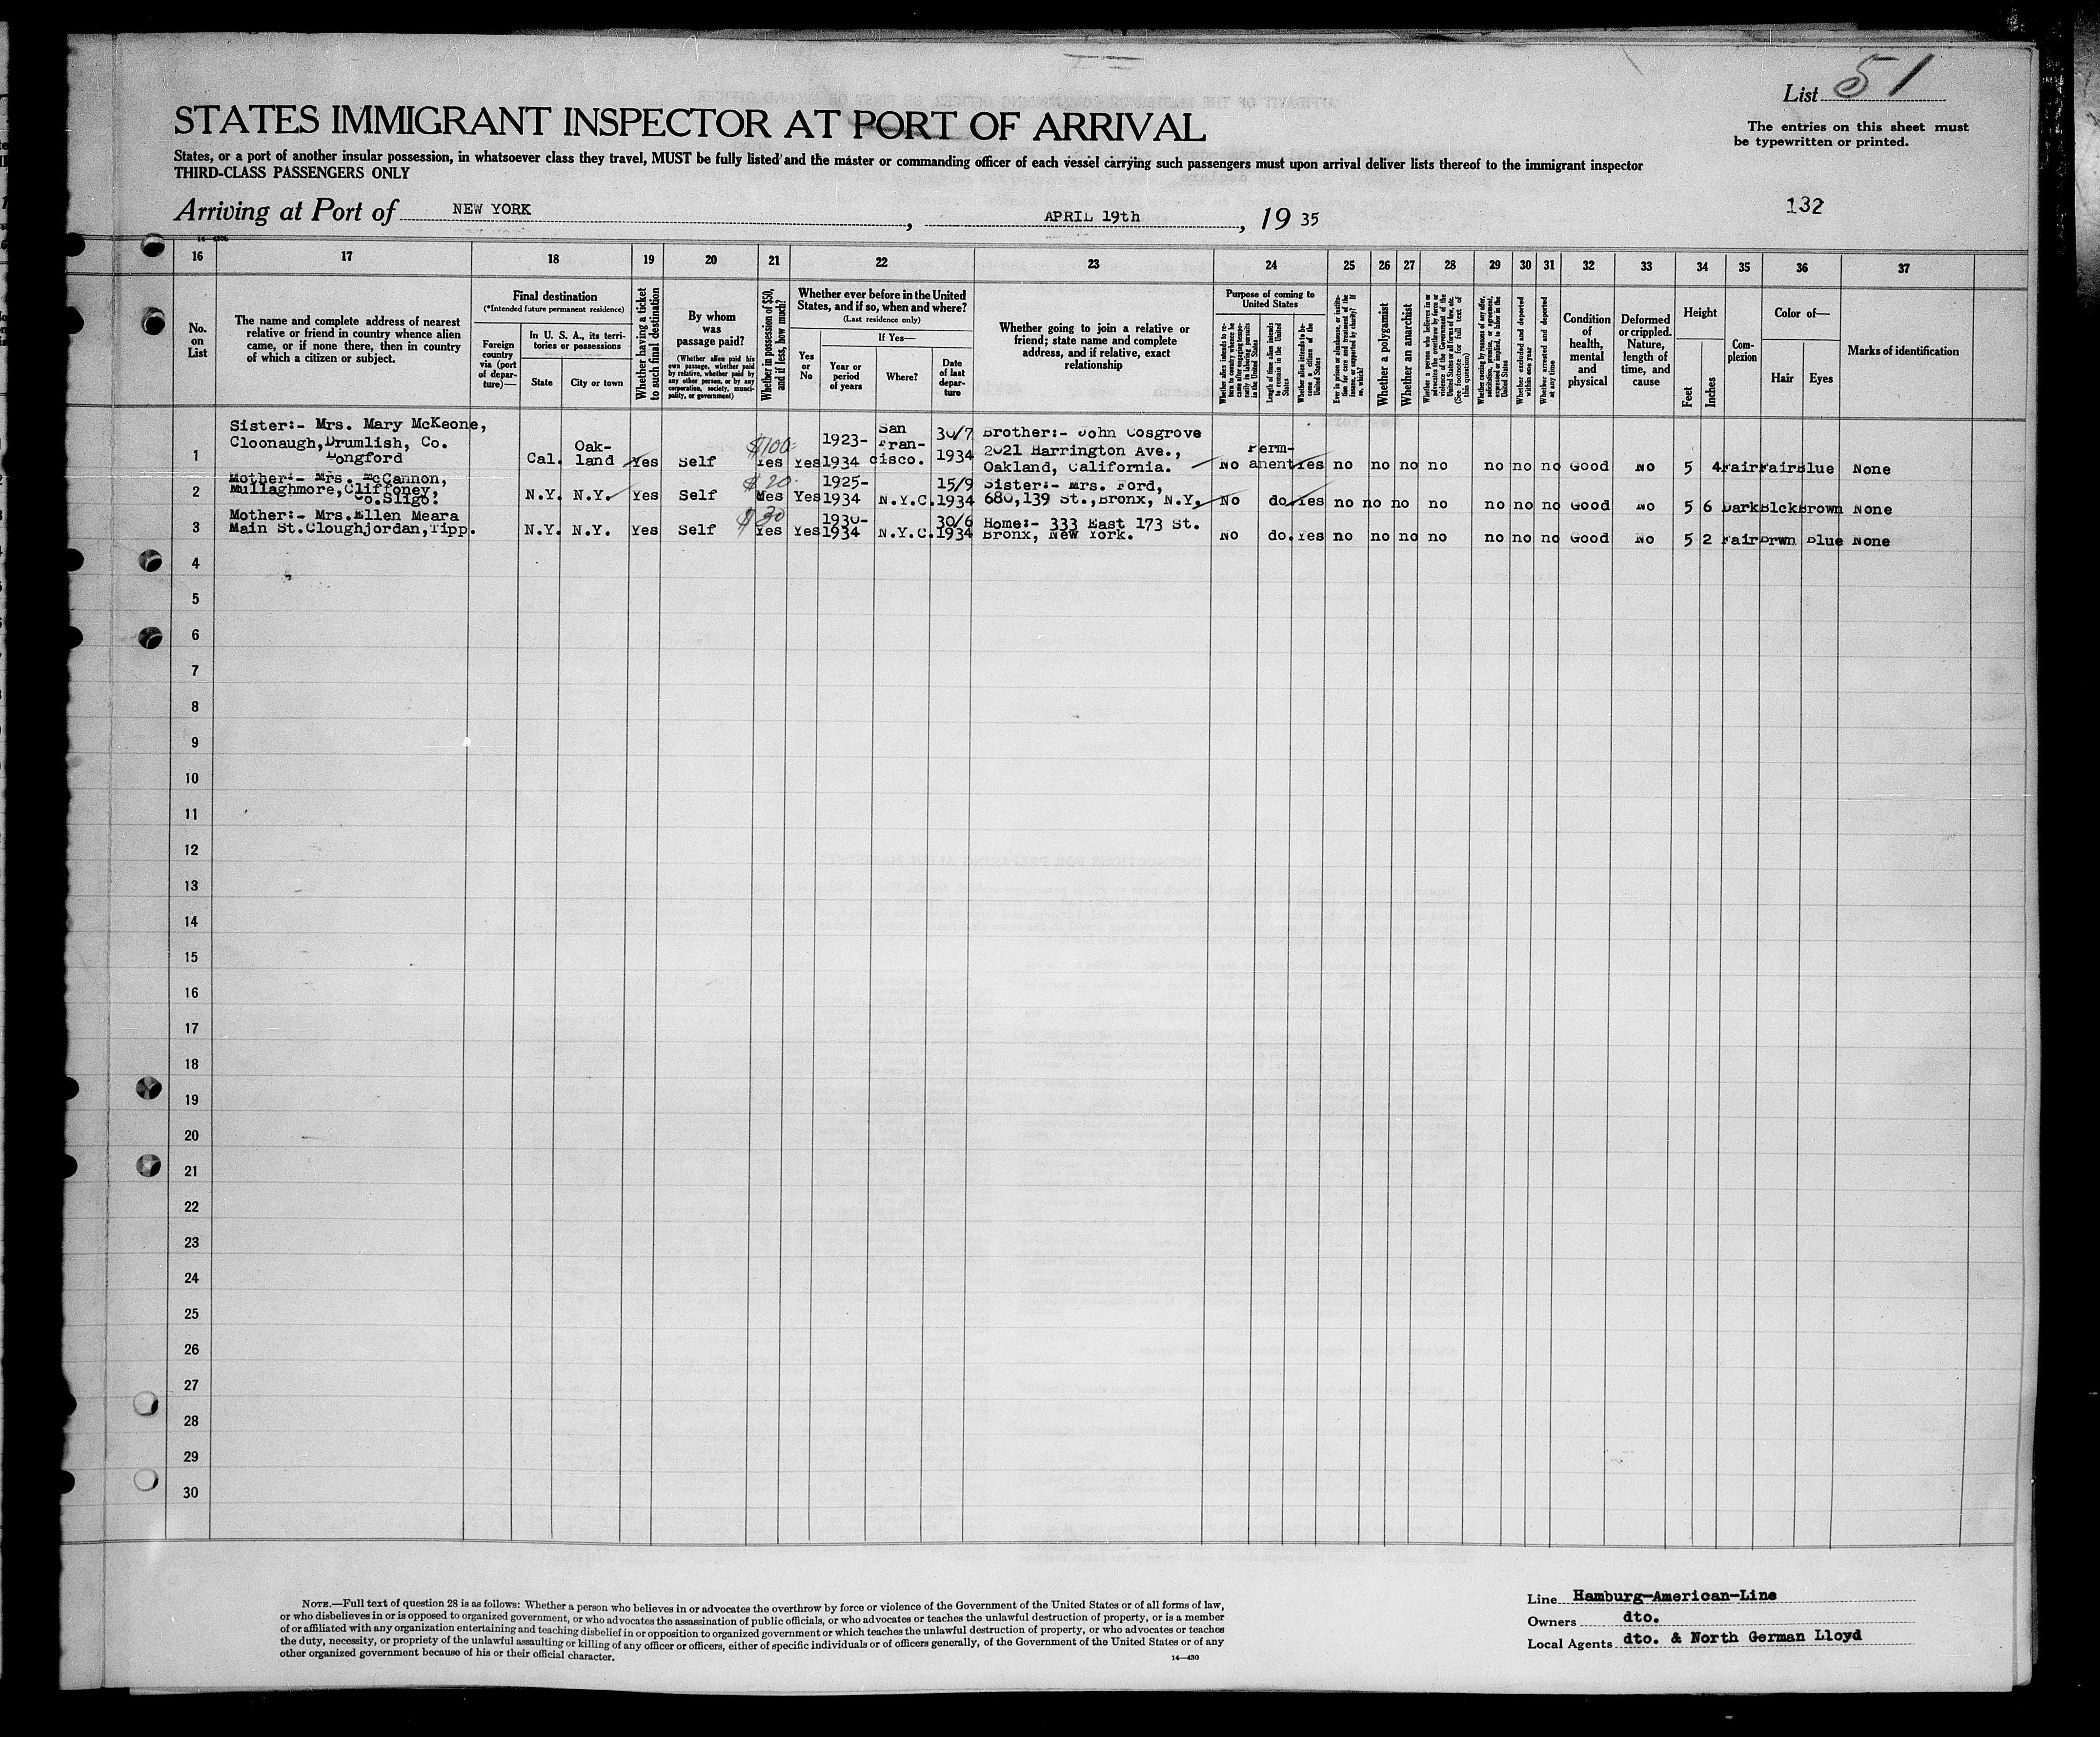 List 51
The entries on this sheet must
be typewritten or printed.
STATES IMMIGRANT INSPECTOR AT PORT OF ARRIVAL
States, or a port of another insular possession, in whatsoever class they travel, MUST be fully listed and the master or commanding officer of each vessel carrying such passengers must upon arrival deliver lists thereof to the immigrant inspector
THIRD-CLASS PASSENGERS ONLY
Arriving at Port of NEW YORK, APRIL 19th, 19 35
132
16 17 18 19 20 21 22 23 24 25 26 27 28 29 30 31 32 33 34 35 36 37
No.
on
List
The name and complete address of nearest
relative or friend in country whence alien
came, or if none there, then in country
of which a citizen or subject.
Final destination
(*Intended future permanent residence)
Foreign
country
via (port
of depar-
ture)—
In U. S. A., its terri-
tories or possessions
State
City or town
Whether having a ticket
to such final destination
By whom
was
passage paid?
(Whether alien paid his
own passage, whether paid
by relative, whether paid by
any other person, or by any
corporation, society, munici-
pality, or government)
Whether in possession of $50,
and if less, how much?
Whether ever before in the United
States, and if so, when and where?
(Last residence only)
Yes
or
No
If Yes—
Year or
period
of years
Where?
Date
of last
depar-
ture
Whether going to join a relative or
friend; state name and complete
address, and if relative, exact
relationship
Purpose of coming to
United States
Whether alien intends to re-
turn to country whence he
came after engaging tempo-
rarily in laboring pursuits
in the United States
Length of time alien intends
to remain in the United
States
Whether alien intends to be-
come a citizen of the
United States
Ever in prison or almshouse, or institu-
tion for care and treatment of the
insane, or supported by charity? If
so, which?
Whether a polygamist
Whether an anarchist
Whether a person who believes in or
advocates the overthrow by force or
violence of the Government of the
United States or all forms of law, etc.
(See footnote for full text of
this question)
Whether coming by reason of any offer,
solicitation, promise, or agreement,
expressed or implied, to labor in the
United States
Whether excluded and deported
within one year
Whether arrested and deported
at any time
Condition
of
health,
mental
and
physical
Deformed
or crippled.
Nature,
length of
time, and
cause
Height
Feet
Inches
Com-
plexion
Color of—
Hair
Eyes
Marks of identification
Sister:- Mrs. Mary McKeone,
Cloonaugh, Drumlish, Co.
Longford
1 Cal. Oak-
land Yes Self $100 Yes Yes 1923-
1934 San
Fran-
cisco. 30/7
1934 Brother:- John Cosgrove
2021 Harrington Ave.,
Oakland, California. No Perm-
anent Yes no no no no no no no Good No 5 4 Fair Fair Blue None
Mother:- Mrs. McCannon,
Mullaghmore, Cliffoney,
Co.Sligo.
2 N.Y. N.Y. Yes Self $20 Yes 1925-
1934 N.Y.C. 15/9
1934 Sister:- Mrs. Ford,
680,139 St., Bronx, N.Y. No do. Yes no no no no no no no Good No 5 6 Dark Blck Brown None
Mother:- Mrs.Ellen Meara
Main St.Cloughjordan,Tipp.
3 N.Y. N.Y. Yes Self $30 Yes Yes 1930-
1934 N.Y.C. 30/6
1934 Home:- 333 East 173 St.
Bronx, New York. No do. Yes no no no no no no no Good No 5 2 Fair Brwn Blue None
4
5
6
7
8
9
10
11
12
13
14
15
16
17
18
19
20
21
22
23
24
25
26
27
28
29
30
NOTE.—Full text of question 28 is as follows: Whether a person who believes in or advocates the overthrow by force or violence of the Government of the United States or of all forms of law,
or who disbelieves in or is opposed to organized government, or who advocates the assassination of public officials, or who advocates or teaches the unlawful destruction of property, or is a member
of or affiliated with any organization entertaining and teaching disbelief in or opposition to organized government or which teaches the unlawful destruction of property, or who advocates or teaches
the duty, necessity, or propriety of the unlawful assaulting or killing of any officer or officers, either of specific individuals or of officers generally, of the Government of the United States or of any
other organized government because of his or their official character.
14—430
Line Hamburg-American-Line
Owners dto.
Local Agents dto. & North German Lloyd